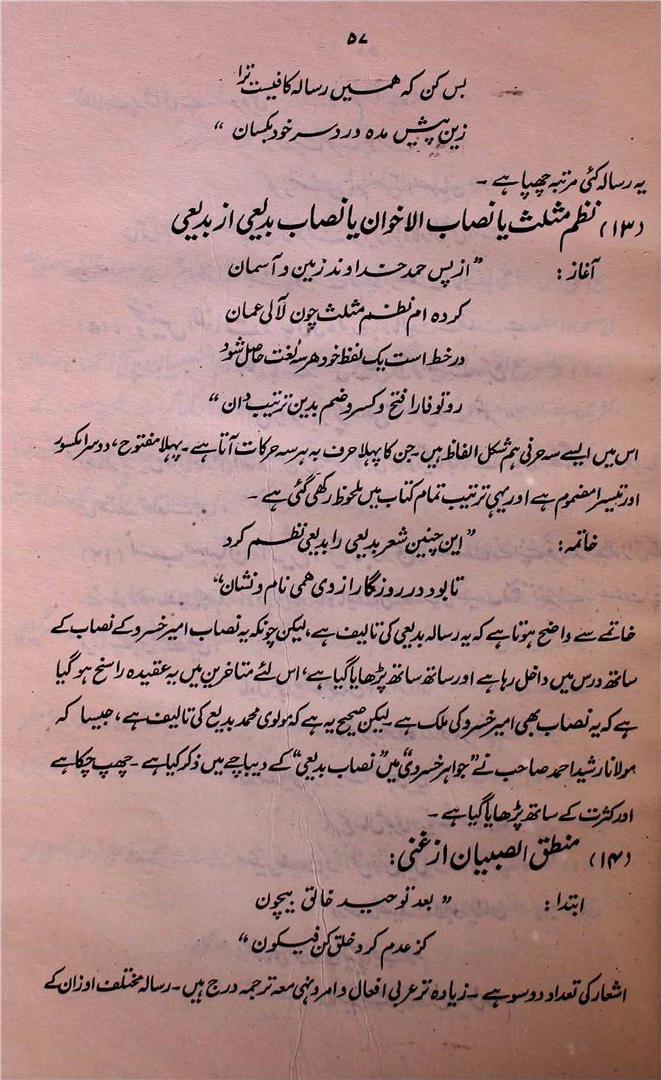 ۵۷
بس کن که همیں رساله کافیست ترا
زین پیش مده دردسر خود بکسان "
یہ رسالہ کئی مرتبہ چھپا ہے ۔
(۱۳) نظم مثلث یا نصاب الاخوان یا نصاب بدیعی از بدیعی
آغاز : " از پس حمد خداوند زمین و آسمان
کرده ام نظم مثلث چون لآلی عمان
در خط است یک لفظ خود هر سه لغت حاصل شود
رو تو فا را فتح و کسر و ضم بدین ترتیب دان "
اس میں ایسے سہ حرفی ہم شکل الفاظ ہیں ۔ جن کا پہلا حرف بہ ہر سہ حرکات آتا ہے ۔ پہلا مفتوح، دوسرا مکسور
اور تیسرا مضموم ہے اور یہی ترتیب تمام کتاب میں ملحوظ رکھی گئی ہے ۔
خاتمہ : " این چنین شعر بدیعی را بدیعی نظم کرد
تا بود در روزگار از وی همی نام و نشان "
خاتمے سے واضح ہوتا ہے کہ یہ رسالہ بدیعی کی تالیف ہے، لیکن چونکہ یہ نصاب امیر خسرو کے نصاب کے
ساتھ درس میں داخل رہا ہے اور ساتھ ساتھ پڑھایا گیا ہے، اس لئے متاخرین میں یہ عقیدہ راسخ ہو گیا
ہے کہ یہ نصاب بھی امیر خسرو کی ملک ہے ۔ لیکن صحیح یہ ہے کہ مولوی محمد بدیع کی تالیف ہے، جیسا کہ
مولانا رشید احمد صاحب نے "جواہر خسروی" میں "نصاب بدیعی" کے دیباچے میں ذکر کیا ہے ۔ چھپ چکا ہے
اور کثرت کے ساتھ پڑھایا گیا ہے ۔
(۱۴) منطق الصبیان از غنی :
ابتدا : " بعد توحید خالق بیچون
کز عدم کرد خلق کن فیکون "
اشعار کی تعداد دو سو ہے ۔ زیادہ تر عربی افعال و امر و نہی معہ ترجمہ درج ہیں ۔ رسالہ مختلف اوزان کے